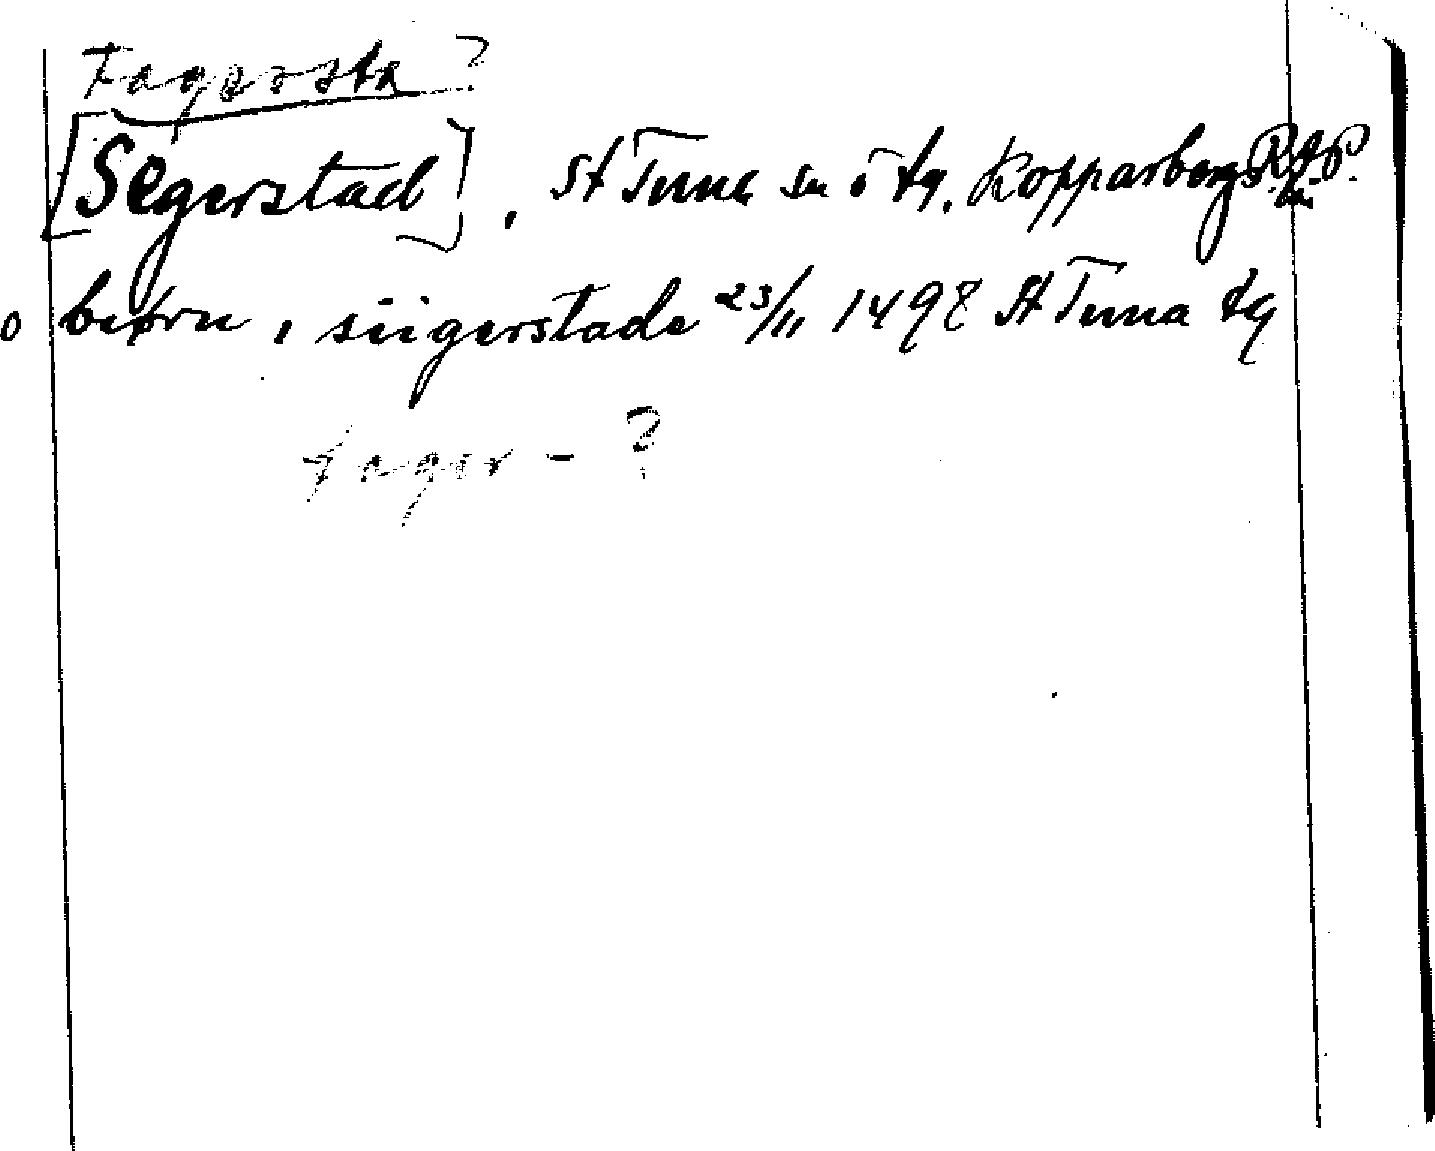 Fagersta ?
[Segerstad], St Tuna sn o tg. Kopparbergs län R.A.P.
o beørn, i siigerstade 23/11 1498 St Tuna tg
fager - ?